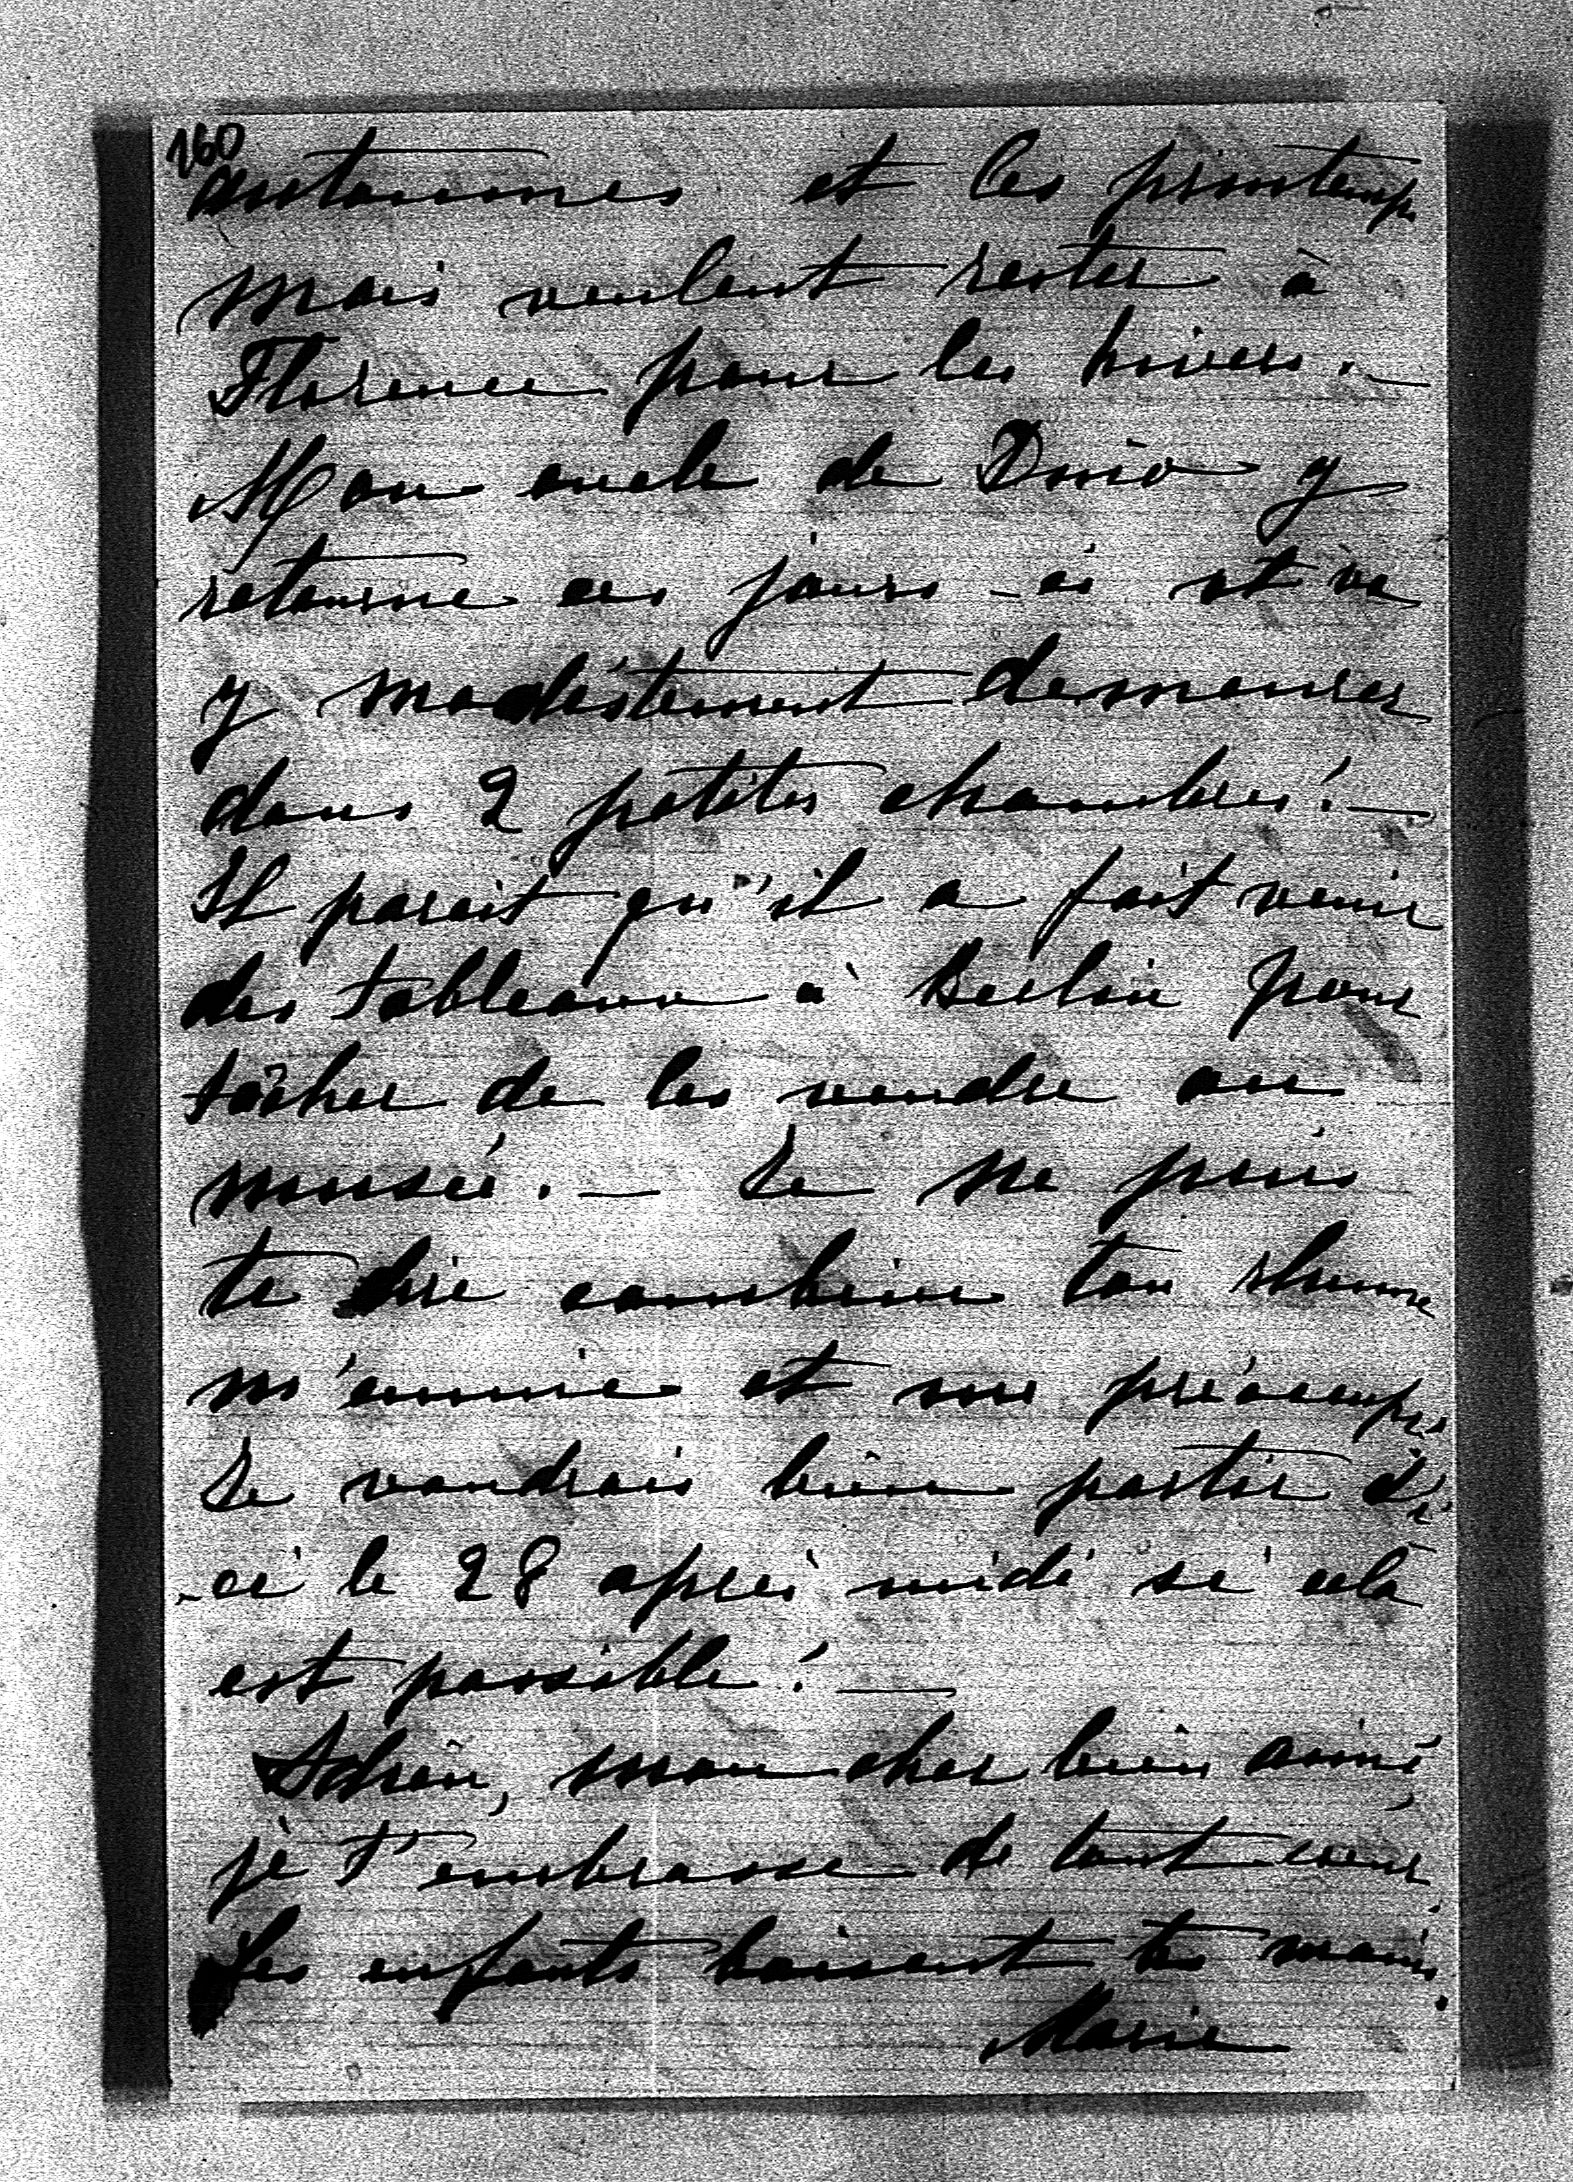 160
automnes et les printemps
mais veulent rester à
Florence pour les hivers. —
Mon oncle de Dino y
retourne ces jours-ci et va
y modestement demeurer
dans 2 petites chambres! —
Il parait qu'il a fait venir
des tableaux à Berlin pour
tâcher de les vendre au
musée. — Je ne puis
te dire combien ton rhume
m'ennuie et me préoccupe
Je voudrais bien partir d'i
-ci le 28 après midi si cela
est possible! —
Adieu, mon cher bien aimé
je t'embrasse de tout cœur
Les enfants baisent tes mains.
Marie